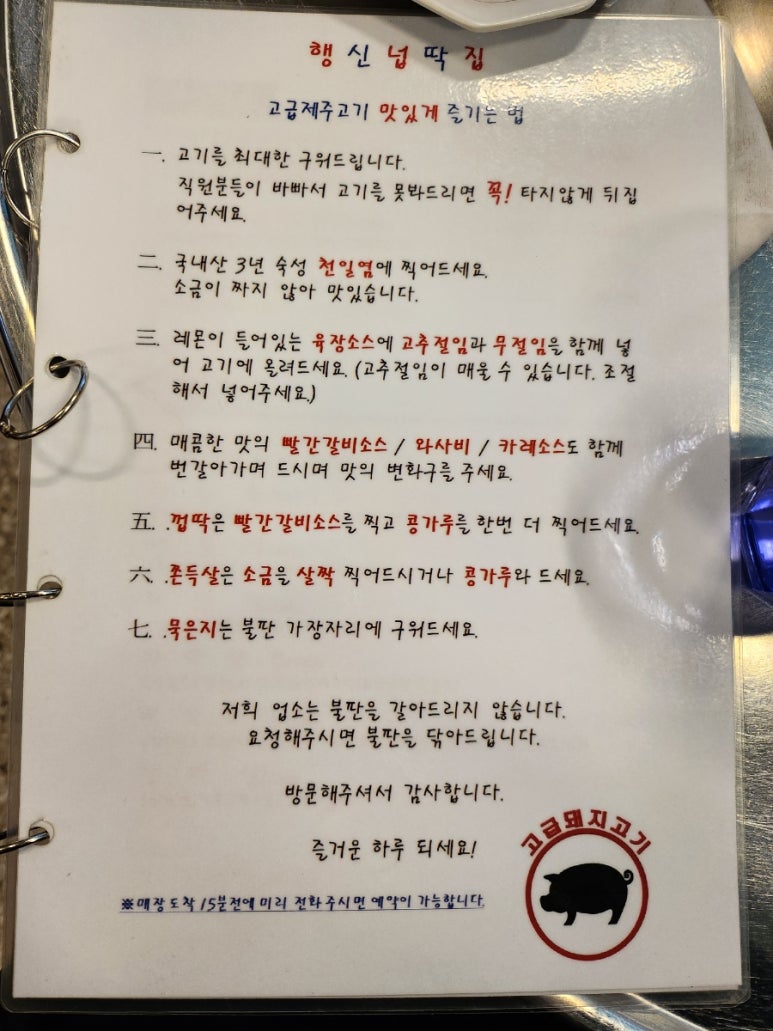 행신넙딱집
고급제주고기 맛있게 즐기는 법
一. 고기를 최대한 구워드립니다.
직원분들이 바빠서 고기를 못봐드리면 꼭! 타지않게 뒤집
어주세요.
二. 국내산 3년 숙성 천일염에 찍어드세요.
소금이 짜지 않아 맛있습니다.
三. 레몬이 들어있는 육장소스에 고추절임과 무절임을 함께 넣
어 고기에 올려드세요. (고추절임이 매울 수 있습니다. 조절
해서 넣어주세요.)
四. 매콤한 맛의 빨간갈비소스 / 와사비 / 카레소스도 함께
번갈아가며 드시며 맛의 변화구를 주세요.
五. .껍딱은 빨간갈비소스를 찍고 콩가루를 한번 더 찍어드세요.
六. .쫀득살은 소금을 살짝 찍어드시거나 콩가루와 드세요.
七. .묵은지는 불판 가장자리에 구워드세요.
저희 업소는 불판을 갈아드리지 않습니다.
요청해주시면 불판을 닦아드립니다.
방문해주셔서 감사합니다.
즐거운 하루 되세요!
고급돼지고기
※매장 도착 15분전에 미리 전화 주시면 예약이 가능합니다.